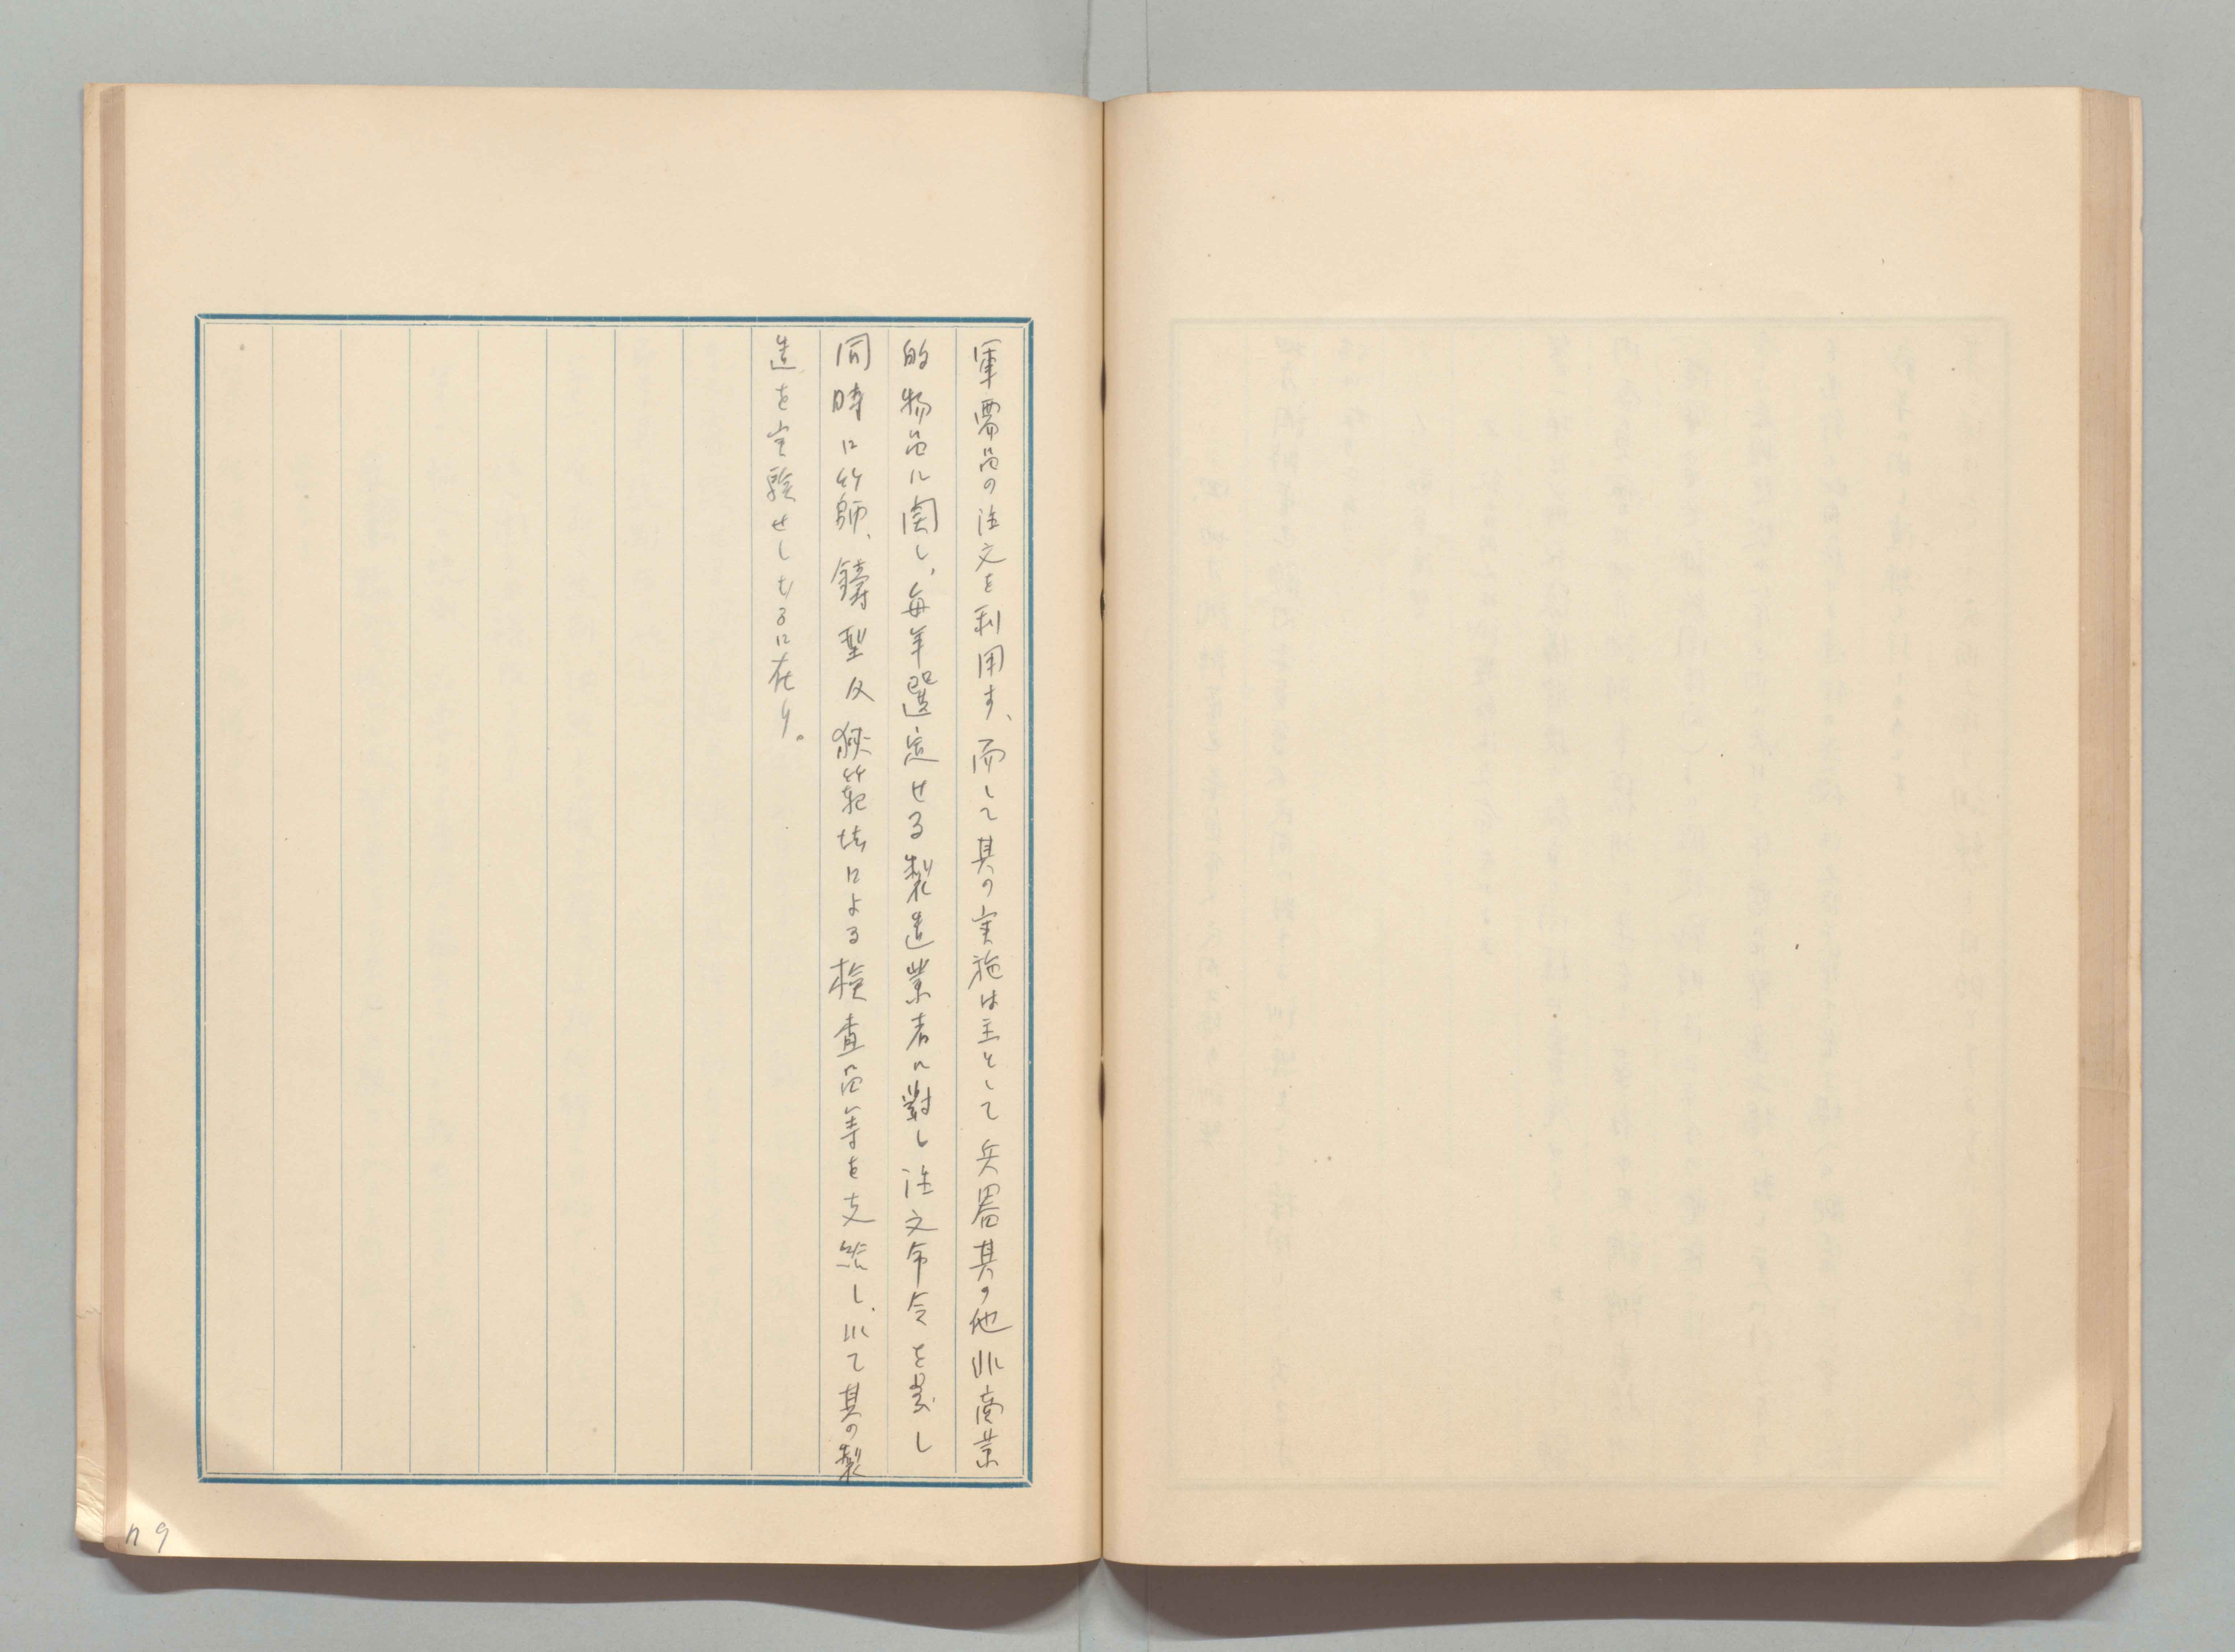 軍需品の注文を利用す、而して其の実施は主として兵器其の他非商業
的物品に関し、毎年選定せる製造業者に對し注文命令を発し
同時に鑄型及範による検査品等を支給し、以て其の製
造を実験せしむるに在り。
79